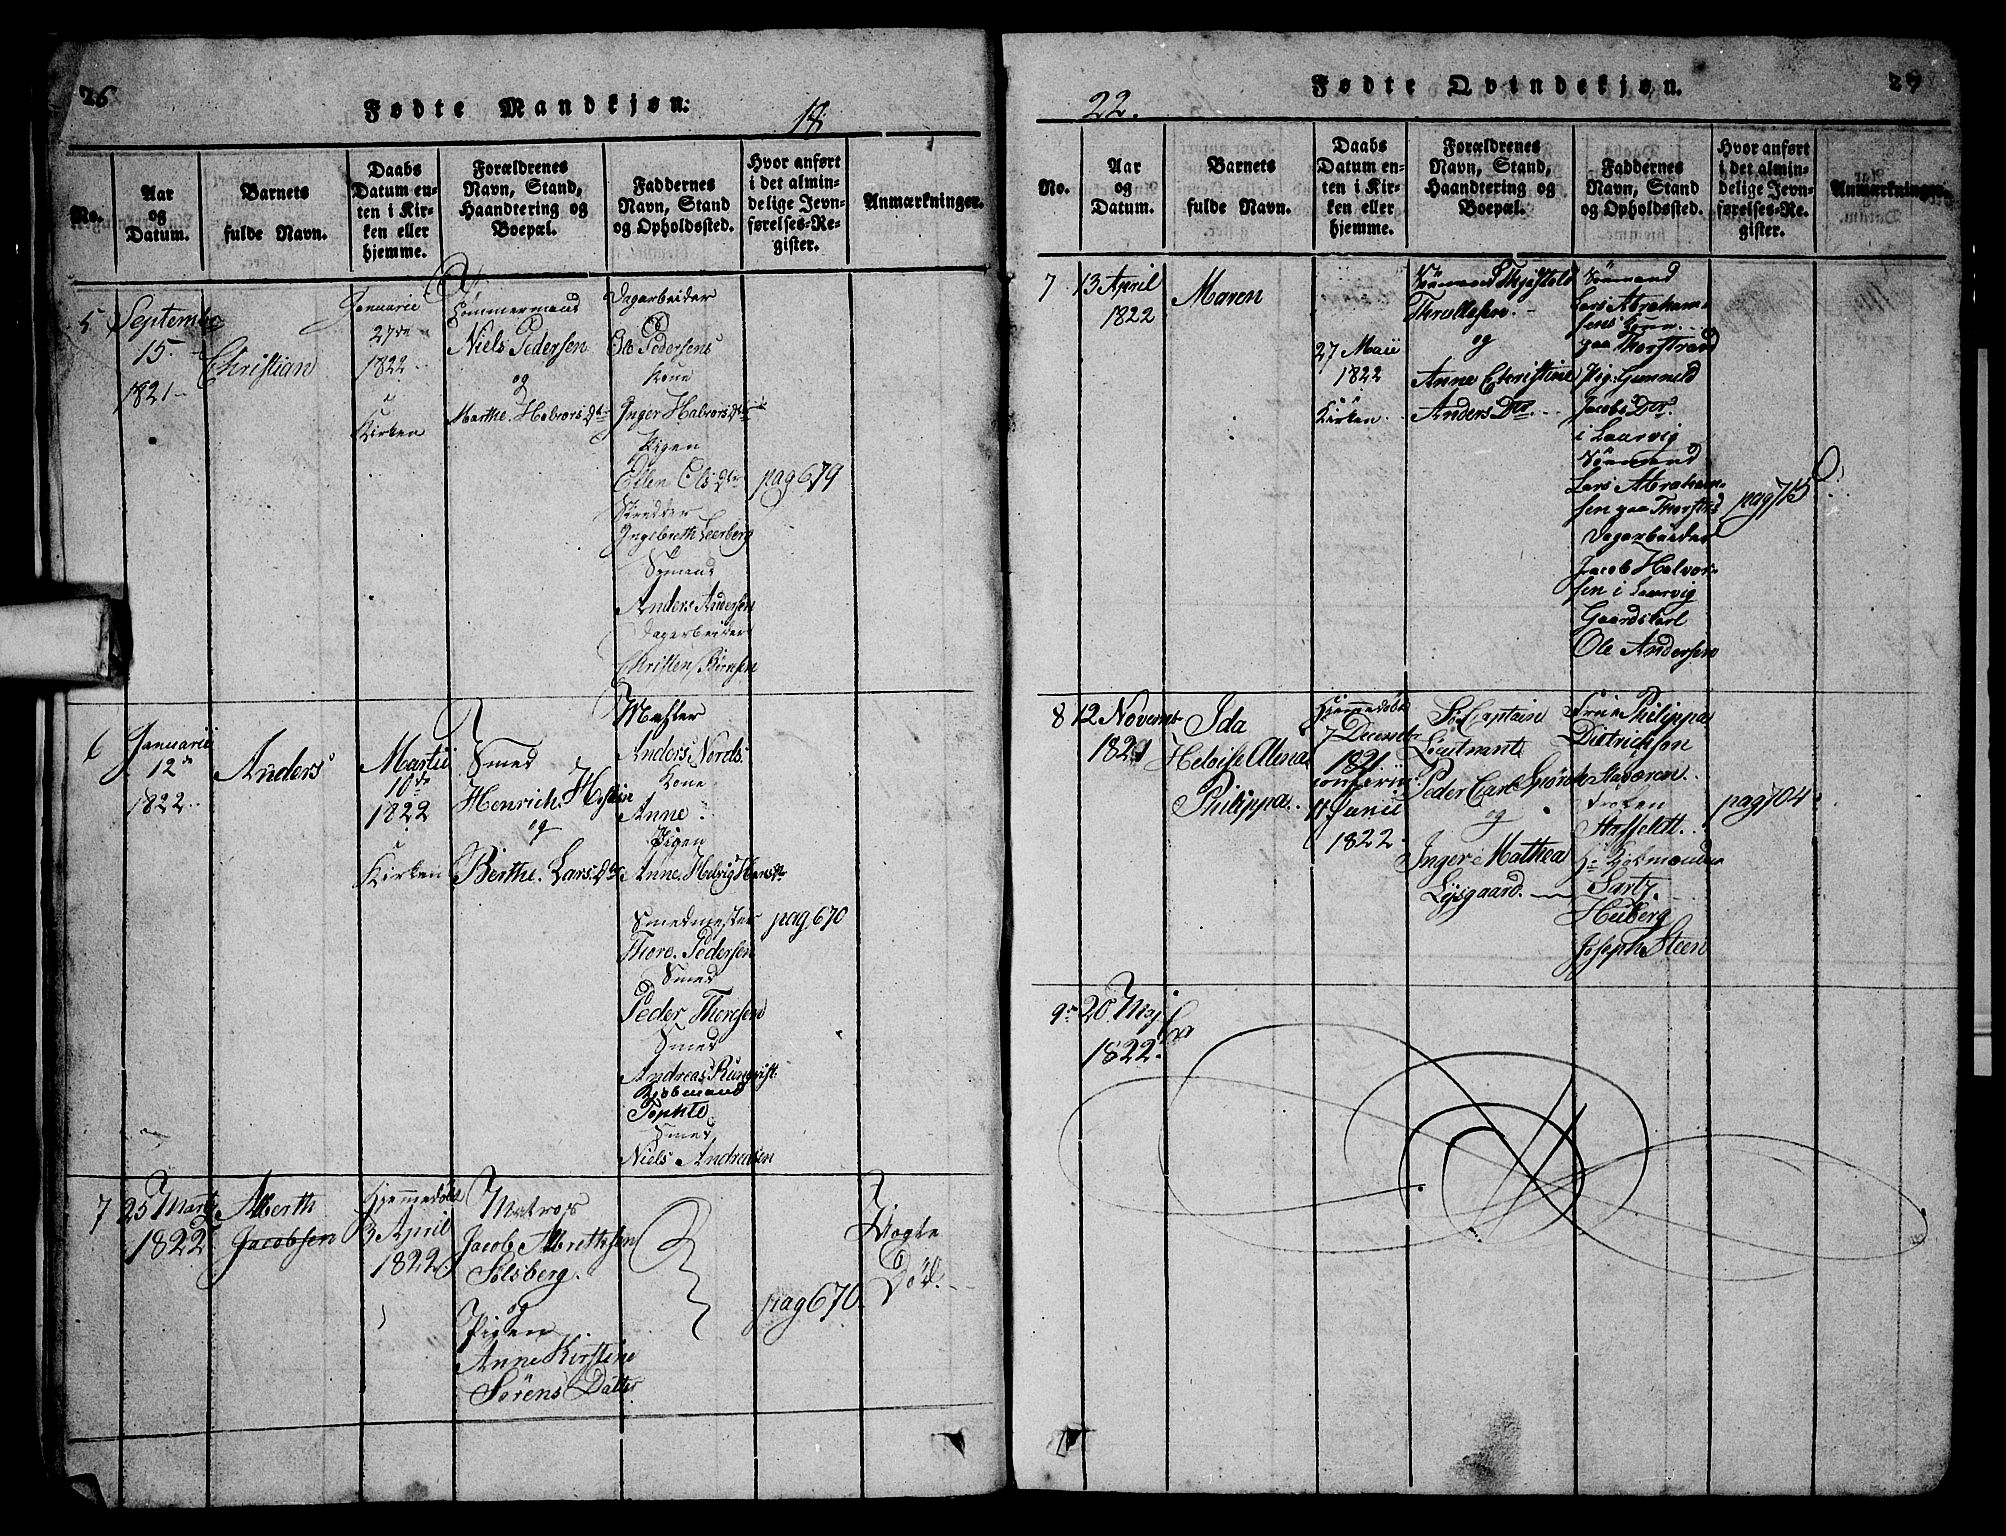 26.
Fødte Mandkjøn:
18
No.
Aar
og
Datum.
Barnets
fulde Navn.
Daabs
Datum en-
ten i Kir-
ken eller
hjemme.
Forældrenes
Navn, Stand,
Haandtering og
Boepæl.
Faddernes
Navn, Stand
og Opholdssted.
Hvor anført
i det almin-
delige Jevn-
førelses-Re-
gister.
Anmærkninger.
5
September
15.
1821
Christian
Januarii
27de
1822
i
Kirken
Tømmermand
Niels Pedersen
og
Marthe Halvors dtr
Dagarbeider
Ole Pedersens
Kone
Inger Halvors dtr
Pigen
Ellen Ols dtr
Skredder
Ingebreth Leerberg
Sømand
Anders Andersen
Dagarbeider
Christen
pag 679
6
Januarii
12
1822
Anders
Martii
10de
1822
i
Kirken
Smed
Henrich
og
Berthe Lars dtr
Mester
Anders Nords
Kone
Anne
Pigen
Anne Helvig Hans dtr
Smedmester
Thore Pedersen
Smed
Peder Thoresen
Smed
Andreas Runqvist
Kiøbmand
Smed
Niels Andreasen
pag 670
7
25 Martii
1822
Alberth
Jacobsen
Hjemmedøbt
3 April
1822
Matros
Jacob Albrethsen
Solsberg
og
Pigen
Anne Kirstine
Sørens Datter
pag 670.
Død.
22.
Fødte Qvindekjøn.
27
No.
Aar
og
Datum.
Barnets
fulde Navn.
Daabs
Datum en-
ten i Kir-
ken eller
hjemme.
Forældrenes
Navn, Stand,
Haandtering og
Boepæl.
Faddernes
Navn, Stand
og Opholdssted.
Hvor anført
i det almin-
delige Jevn-
førelses-Re-
gister.
Anmærkninger.
7
13 April
1822
Maren
27 Maii
1822
Kirken
Sømand
og
Anne Christine
Anders Dtr.
Sømand
Lars Abraham-
sens Kone
paa Thorstrand
Pig. Gunnild
Jacobs Dtr.
i Laurvig
Sømand
Lars Abraham-
sen paa
Dagarbeider
Jacob Halvor-
sen i Laurvig
Gaardskarl
Ole Andersen
pag 715
8
12 Novembr
1821
Ida
Heloise Alma
Philippa
Hjemmedøbt
7 December
1821
11 Junii
1822
Sø Captaine
Lieutnant
Peder Carl
og
Inger Mathea
Lysgaard.
Frue Philippa
Dietrichson
Staværen
Frøken
Staffeldt
Sartz
Heiberg
Joseph Steen
pag 704
9
20 Maj
1822